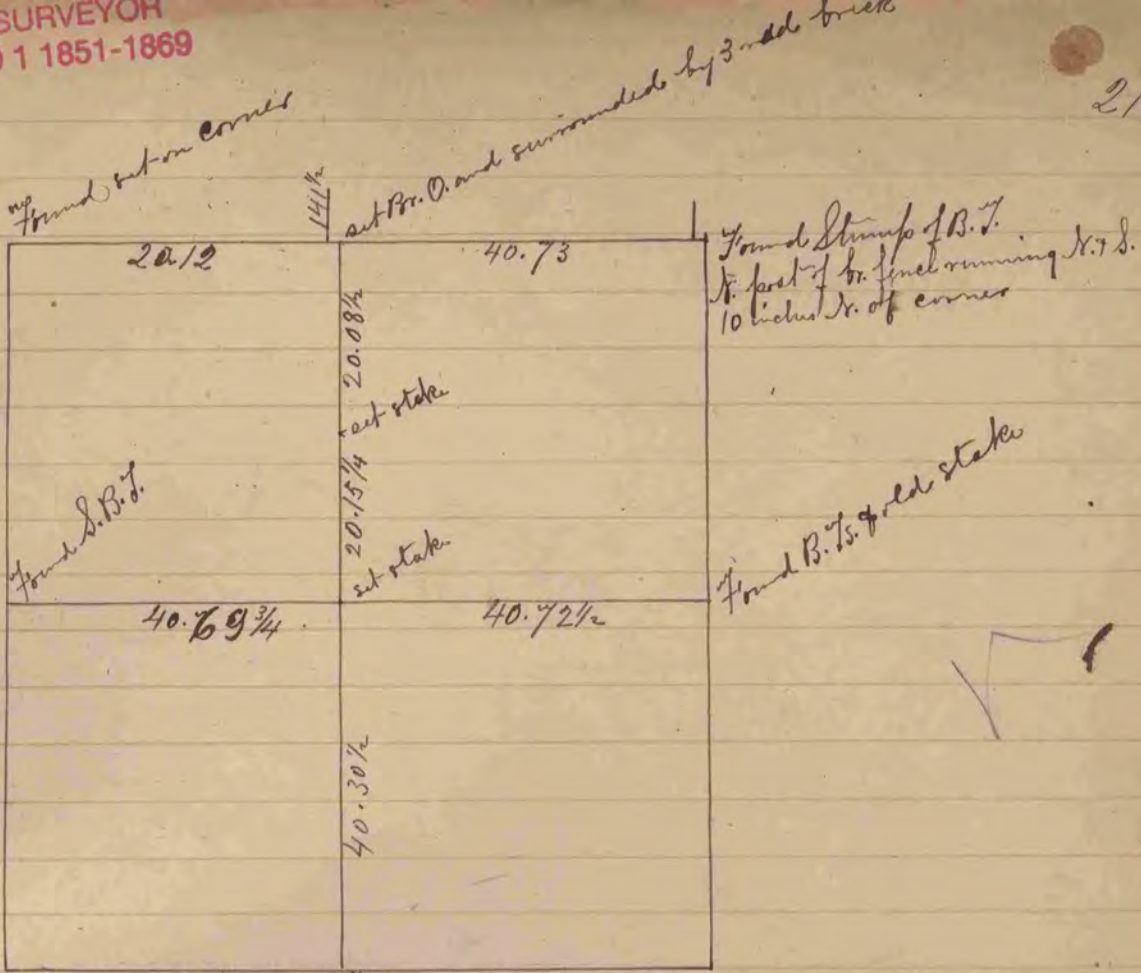 SURVEYOR
1 1851-1869
21
Found set on corner
141½
set Br. O. and surrounded by 3 red brick
20.12
40.73
Found Stump of B.T.
N. post of br. fence running N. & S.
10 inches N. of corner
20.08½
set stake
20.15¼
set stake
Found S.B.T.
Found B.Ts. & old stake
40.69¾
40.72½
40.30½